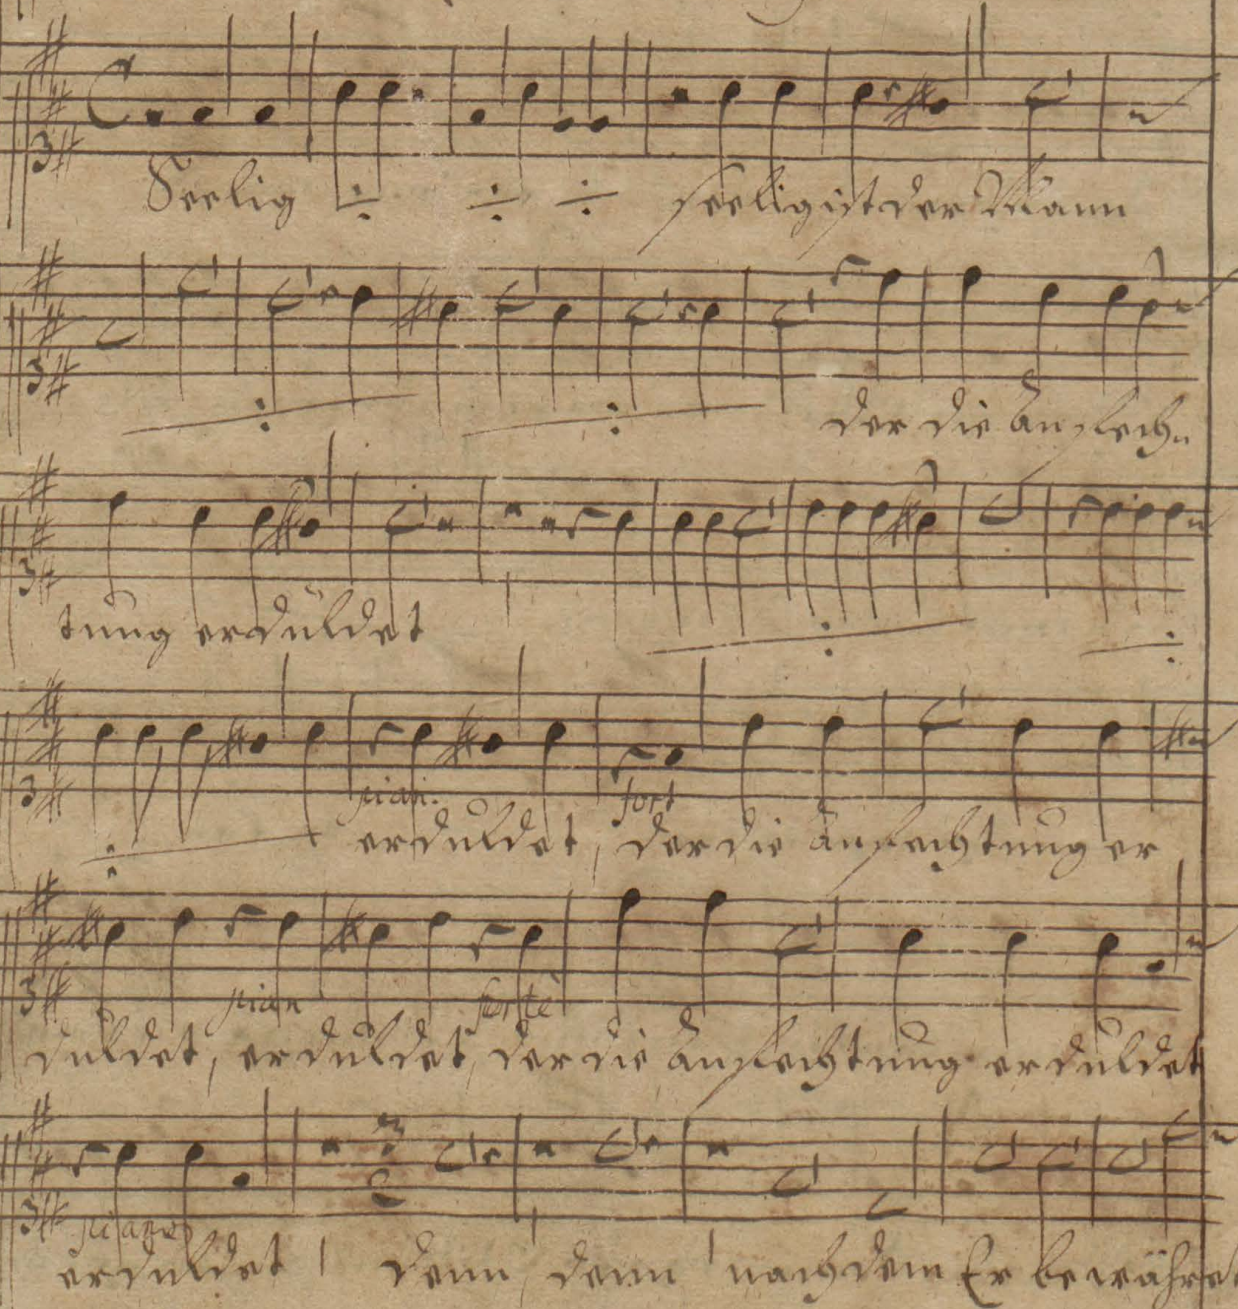 Seelig ./. ./. ./. seelig ist der Mann
./. ./. der die Anfech-
tung erduldet ./. ./.
pian. fort
./. erduldet, der die Anfechtung er
pian forte
duldet, erduldet, der die Anfechtung erduldet
piano
erduldet denn, denn nachdem Er bewähret